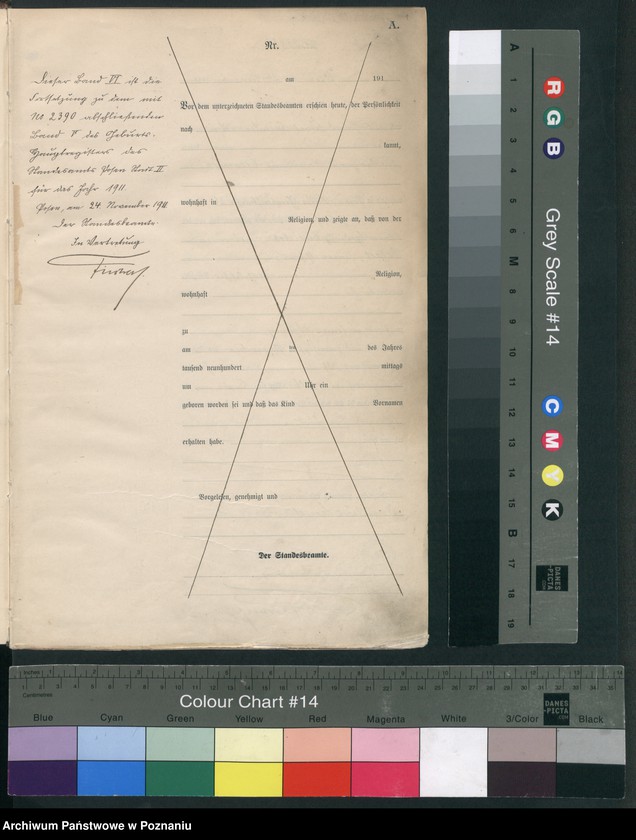 A.
Nr.
Dieser Band VI ist die
Fortsetzung zu dem mit
No 2390 abschließenden
Band V des Geburts-
Hauptregisters des
Standesamts Posen Amt II
für das Jahr 1911.
Posen, am 24. November 1911
Der Standesbeamte
In Vertretung.
am 191
Vor dem unterzeichneten Standesbeamten erschien heute, der Persönlichkeit
nach
kannt,
wohnhaft in
Religion, und zeigte an, daß von der
Religion,
wohnhaft
zu
am ten des Jahres
tausend neunhundert mittags
um Uhr ein
geboren worden sei und daß das Kind Vornamen
erhalten habe.
Vorgelesen, genehmigt und
Der Standesbeamte.
A 1 2 3 4 5 6 M 8 9 10 11 12 13 14 15 B 17 18 19
R G B
Grey Scale #14
C M Y K
DANES
-PICTA
.COM
Inches 1 2 3 4 5 6 7 8 9 10 11 12 13 14
Centimetres 1 2 3 4 5 6 7 8 9 10 11 12 13 14 15 16 17 18 19 20 21 22 23 24 25 26 27 28 29 30 31 32 33 34 35
Colour Chart #14
DANES
-PICTA
.COM
Blue Cyan Green Yellow Red Magenta White 3/Color Black
Archiwum Państwowe w Poznaniu